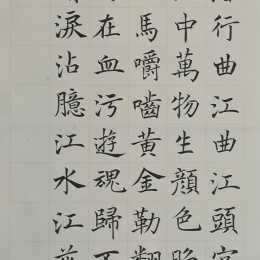 行曲江曲江頭宮
中萬物生顏色昭
馬嚼嚙黃金勒翻
在血污遊魂歸不
淚沾臆江水江花